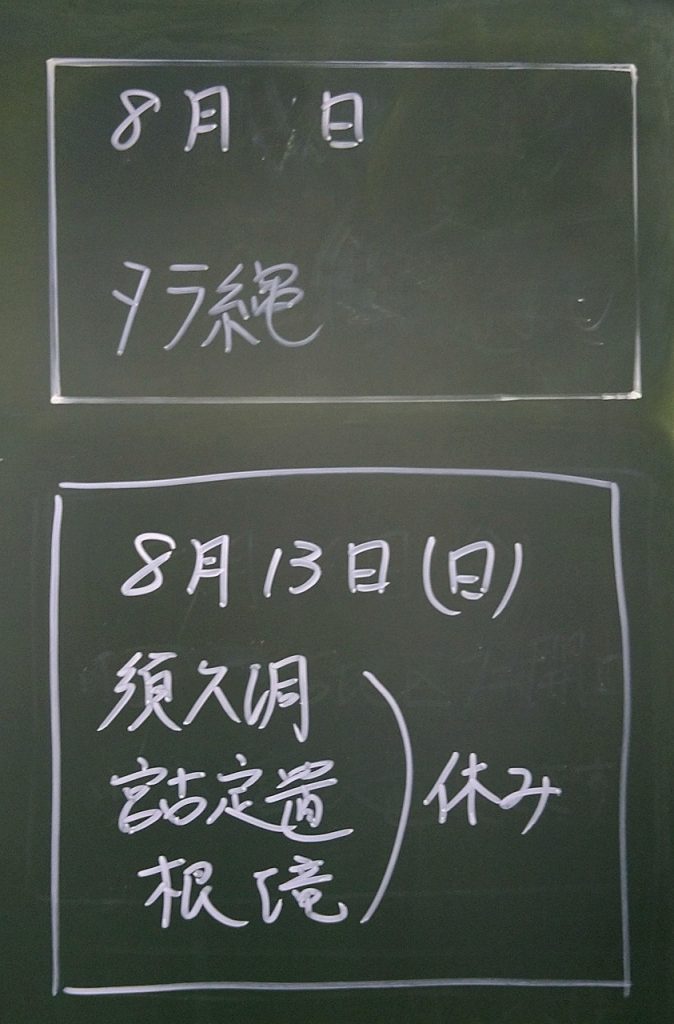 8月 日
タラ縄
8月13日(日)
須久洞
宮古定置
根滝
休み